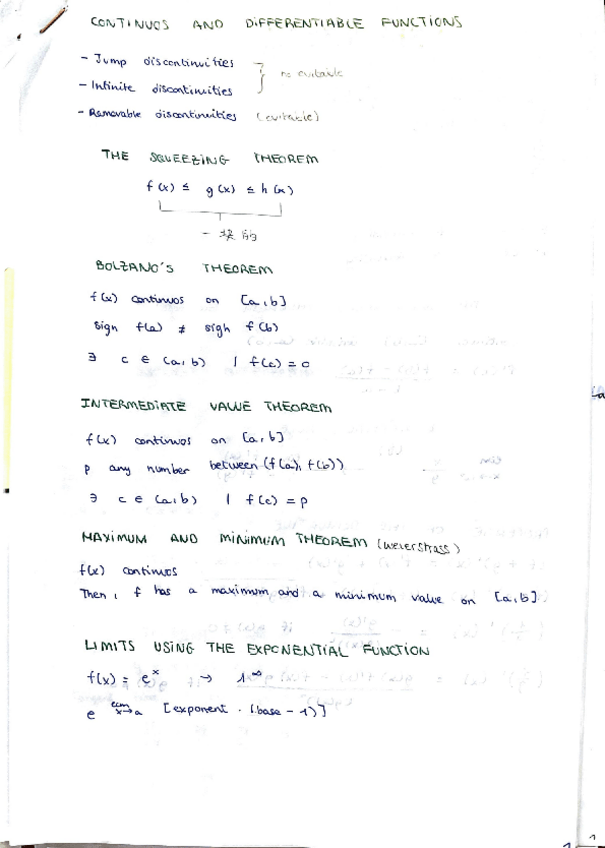 CONTINUOS AND DIFFERENTIABLE FUNCTIONS
- Jump discontinuities
- Infinite discontinuities
} no evitable
- Removable discontinuities (evitable)
THE SQUEEZING THEOREM
f(x) ≤ g(x) ≤ h(x)
一块的
BOLZANO'S THEOREM
f(x) continuos on [a,b]
sign f(a) ≠ sign f(b)
∃ c ∈ (a,b) | f(c) = 0
INTERMEDIATE VALUE THEOREM
f(x) continuos on [a,b]
p any number between (f(a), f(b))
∃ c ∈ (a,b) | f(c) = p
MAXIMUM AND MINIMUM THEOREM (Weierstrass)
f(x) continuos
Then, f has a maximum and a minimum value on [a,b].
LIMITS USING THE EXPONENTIAL FUNCTION
f(x) = e^x → 1^∞
e^lim x→a [exponent · (base - 1)]
1